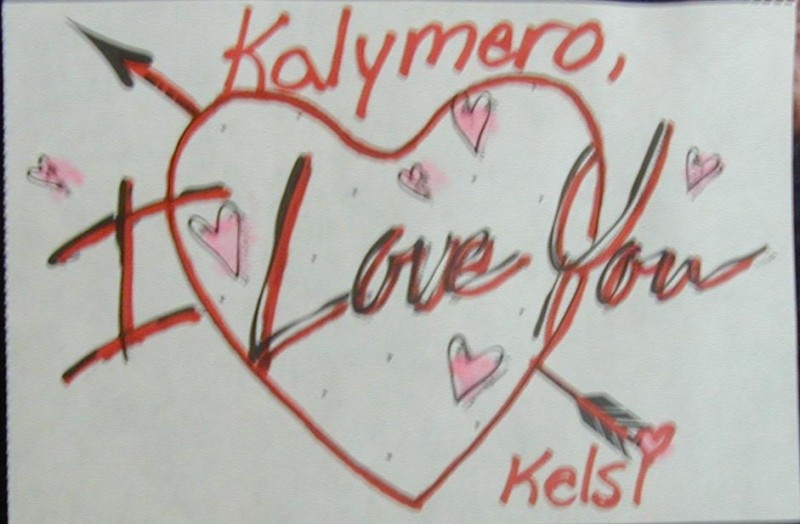 Kalymero,
I Love You
Kelsi